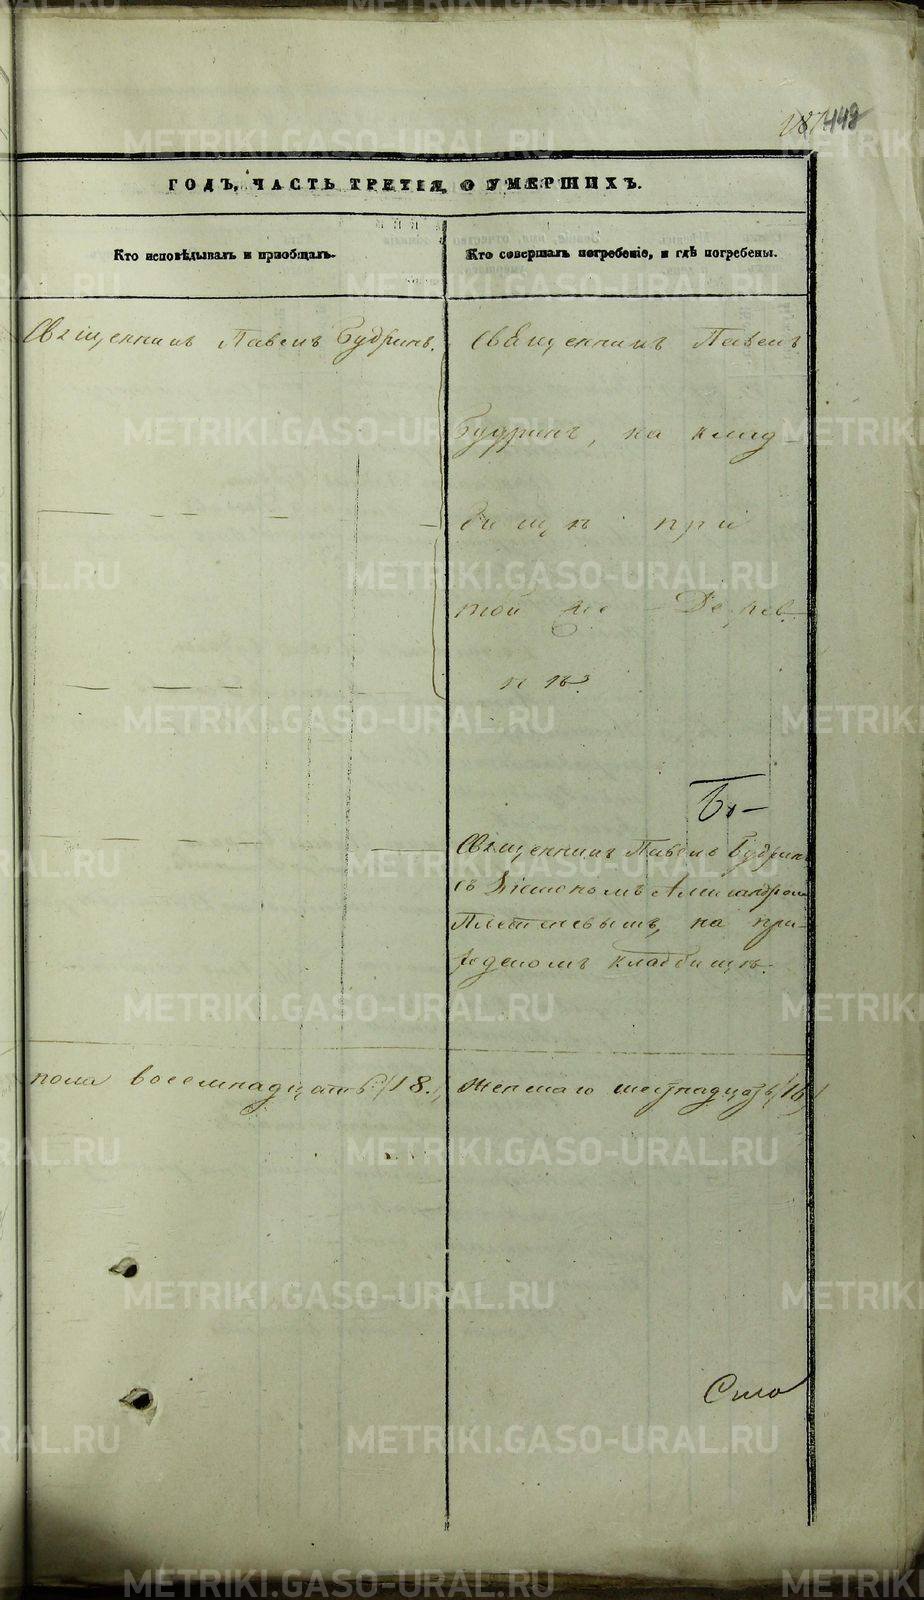 449
ГОДЪ, ЧАСТЬ ТРЕТІЯ, О УМЕРШИХЪ.
Кто исповѣдывалъ и пріобщалъ.
Кто совершалъ погребеніе, и гдѣ погребены.
Священникъ Павелъ Будринъ.
Священникъ Павелъ
Будринъ, на клад-
бищѣ при
той же Дерев-
нѣ.
Священникъ Павелъ Будринъ
съ Діакономъ
Плетеневымъ, на при-
кладбищѣ.
пола восемнадцать (18.)
женскаго шестнадцать (16)
METRIKI.GASO-URAL.RU